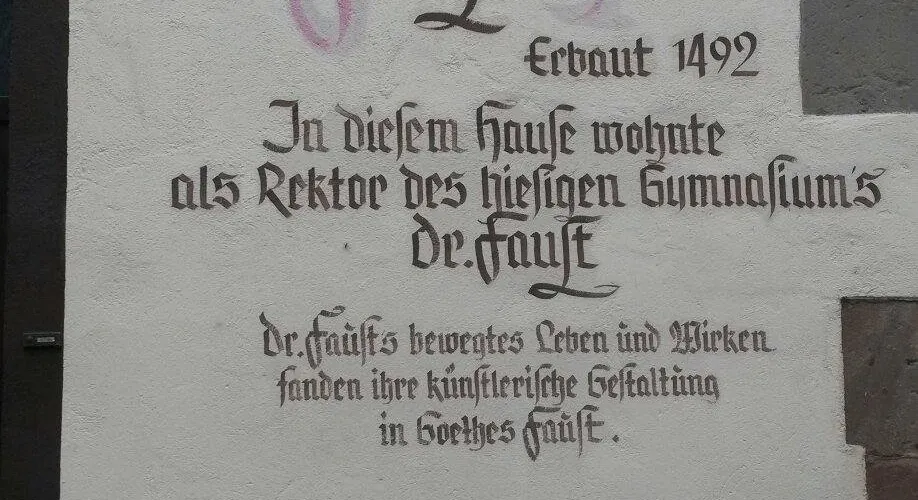 Erbaut 1492
In diesem Hause wohnte
als Rektor des hiesigen Gymnasium's
Dr. Faust
Dr. Faust's bewegtes Leben und Wirken
fanden ihre künstlerische Gestaltung
in Goethes Faust.